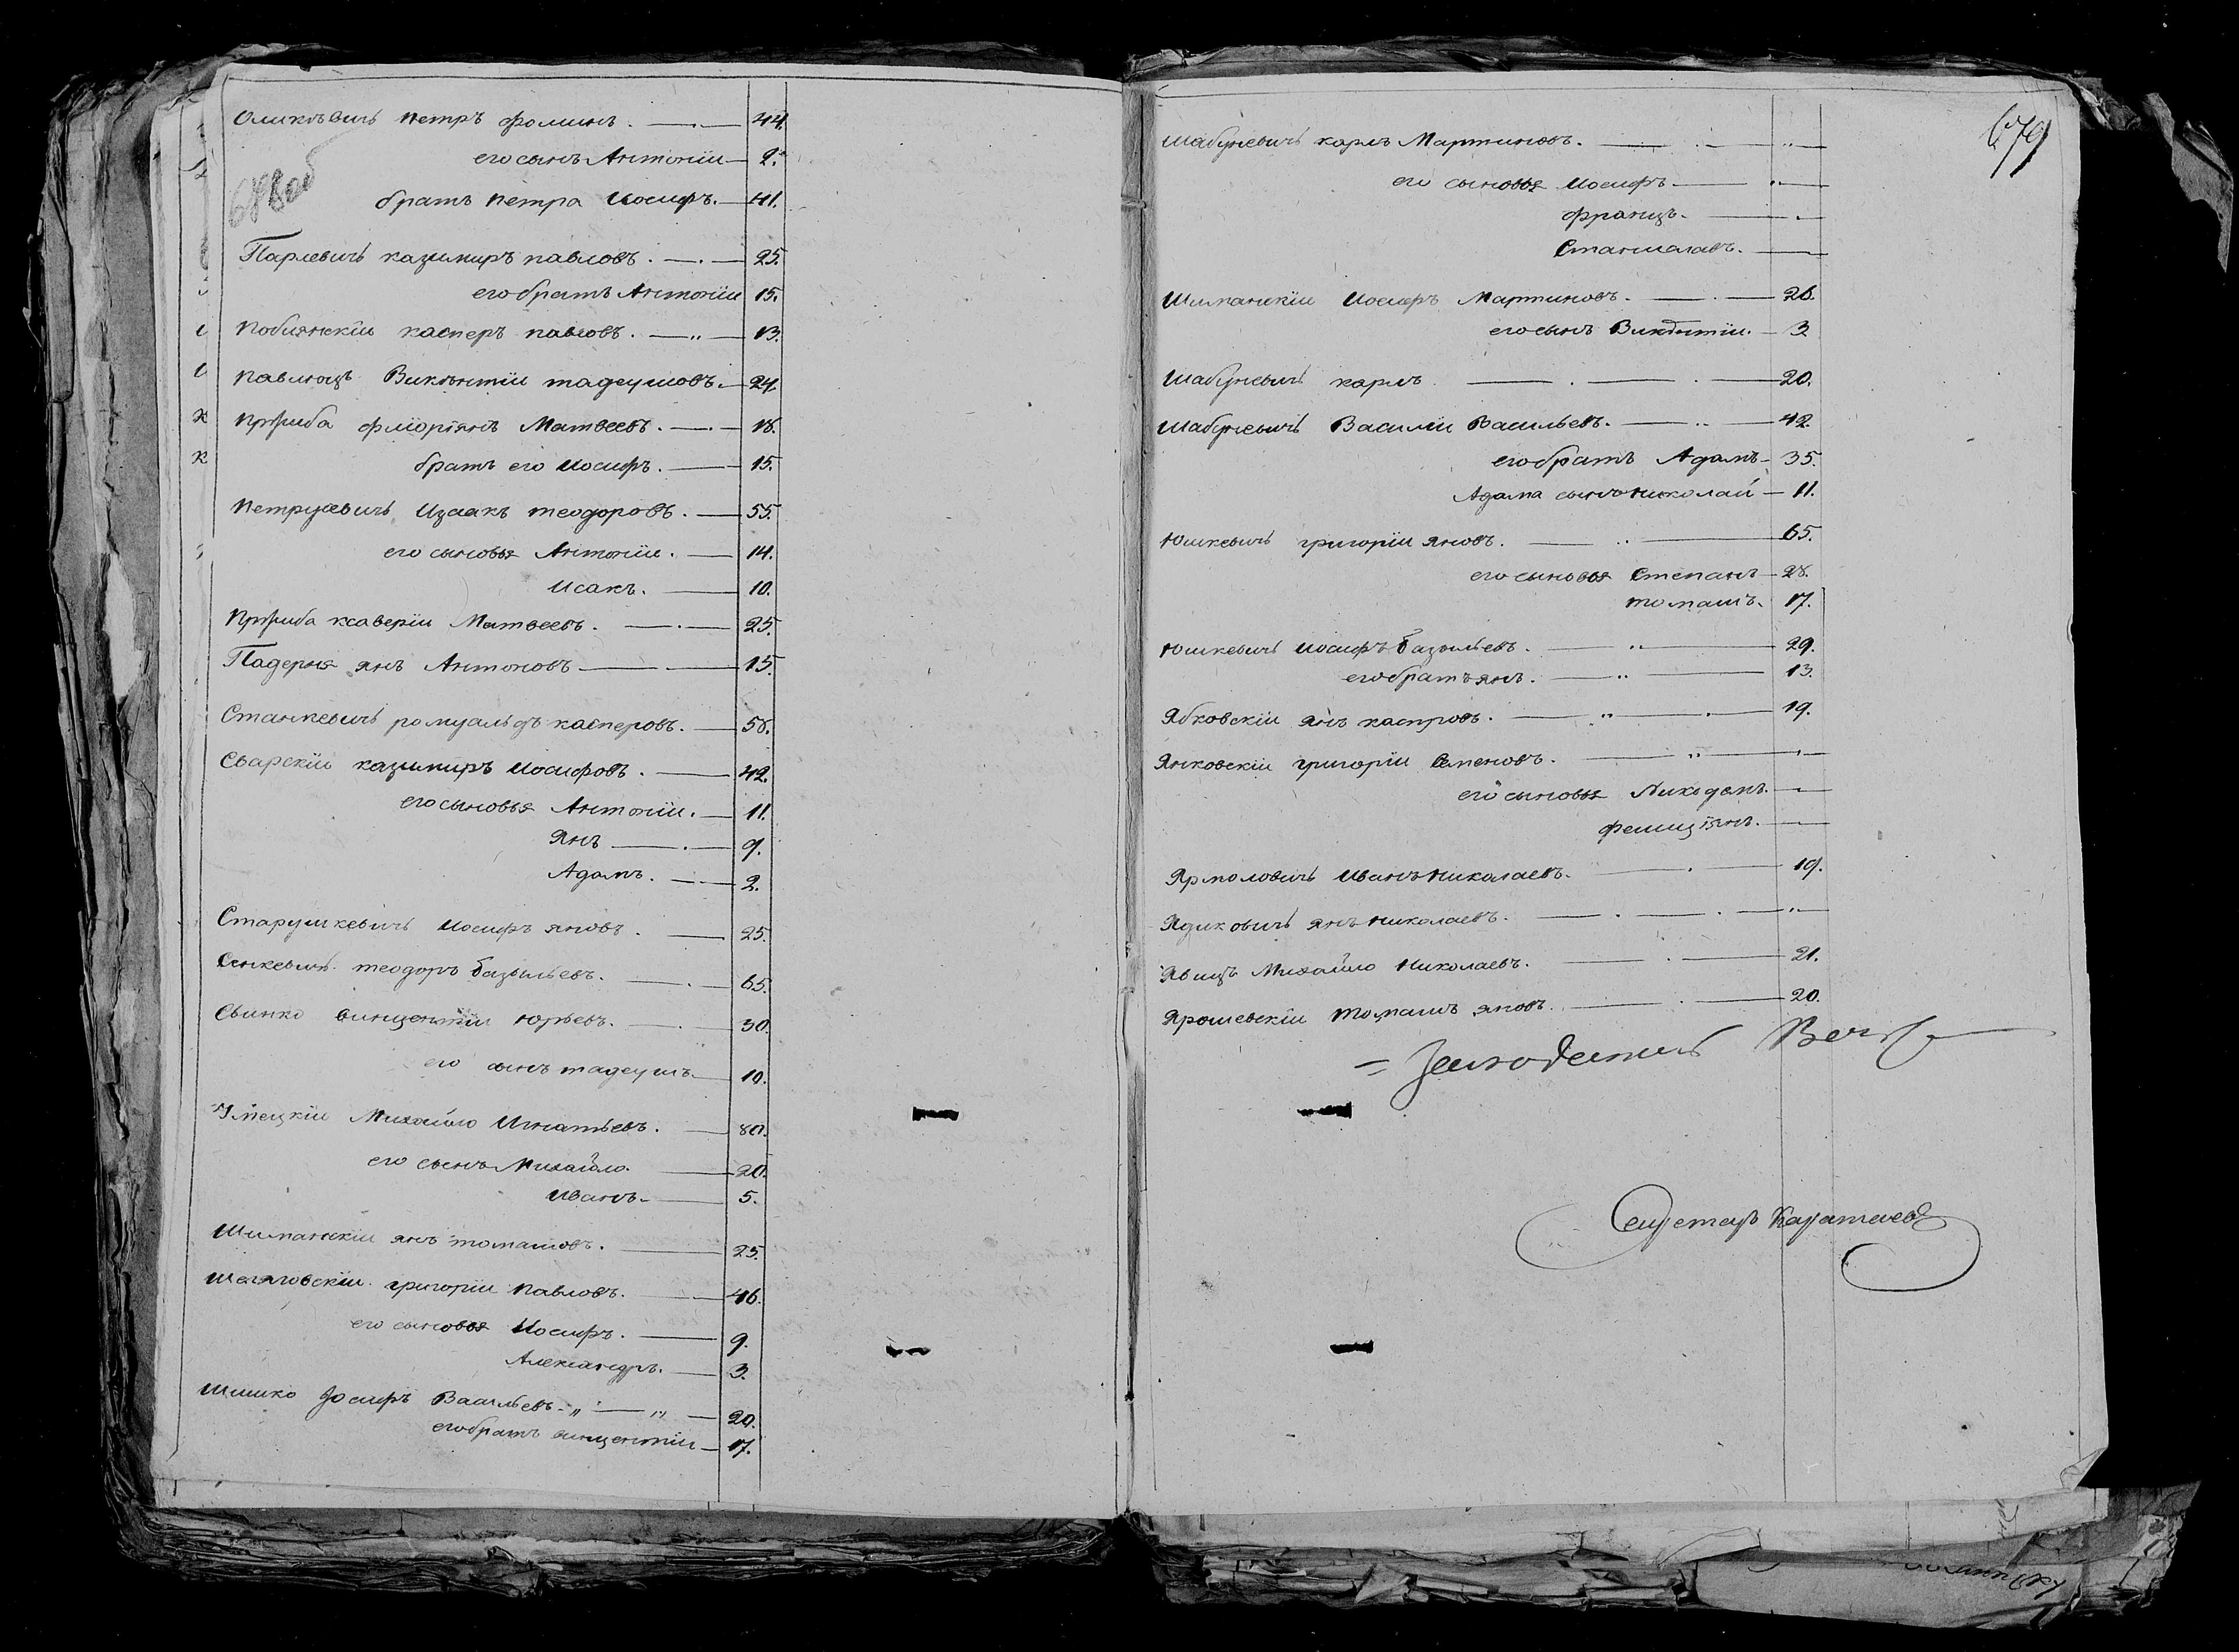 Олихвѣвичь Петръ Фоминъ. 44.
его сынъ Антоніи 2.
братъ Петра Иосифъ. 41.
Парлевичь казимиръ павловъ. 25.
его братъ Антоніи 15.
Побиянскіи касперъ павловъ. 13.
павлюць Викѣнтіи тадеушовъ. 24.
флюріянъ Матвеевъ. 18.
братъ его Иосифъ. 15.
Петрусевичь Изаакъ теодоровъ. 55.
его сыновья Антоніи. 14.
Исакъ. 10.
ксаверіи Матвеевъ. 25.
Падерня янъ Антоновъ 15.
Станкевичь ромуальдъ касперовъ. 56.
Сварскіи казимиръ Иосифовъ. 42.
его сыновья Антоніи. 11.
Янъ 9.
Адамъ. 2.
Старушкевичь Иосифъ яновъ. 25.
Сенкевичь теодоръ базыльевъ. 65.
Свинко винцентіи Юрьевъ. 30.
его сынъ тадеушъ 10.
Михайло Игнатьевъ. 80.
его сынъ Михайло. 20.
Иванъ 5.
Шиманскіи янъ томашовъ. 25.
Шеляговскіи григоріи павловъ. 46.
его сыновья Иосифъ. 9.
Александръ. 3.
Шишко Іосифъ Васильевъ 20.
его братъ винцентіи 17.
679
Шабуневичь карлъ Мартиновъ.
его сыновья Иосифъ
францъ.
Станиславъ.
Шиманскіи Иосифъ Мартиновъ. 26.
его сынъ Викѣнтіи. 3
Шабуневичь карлъ 20.
Шабуневичь Василіи Васильевъ. 42.
его братъ Адамъ 35.
Адама сынъ николай 11.
Юшкевичь григоріи яновъ. 65.
его сыновья Степанъ 28.
томашъ. 17.
Юшкевичь иосифъ базыльевъ. 29.
его братъ янъ. 13.
Ябковскіи янъ каспровъ. 19.
Янковскіи григоріи Семеновъ.
его сыновья Никодымъ.
фелиціянъ.
Ярмоловичь Иванъ николаевъ. 19.
Ядиковичь янъ николаевъ.
Явицъ Михайло Николаевъ. 21.
Ярошевскіи томашъ яновъ. 20.
Секретарь Каратаевъ